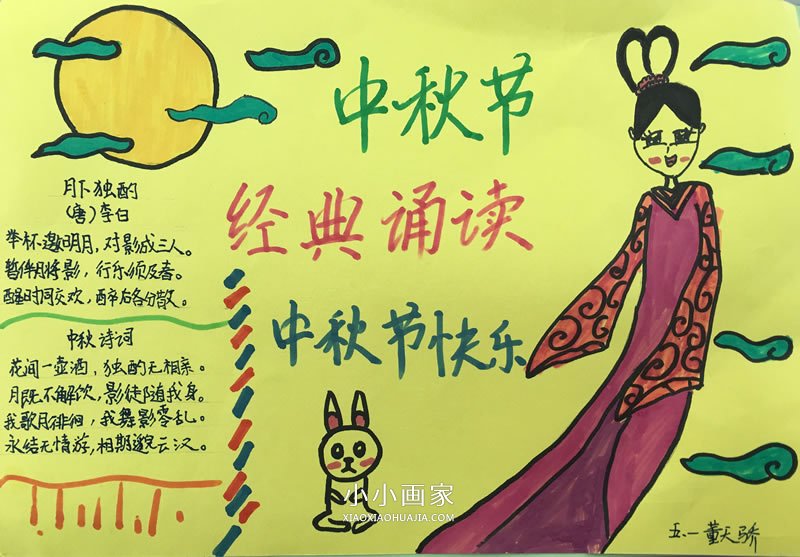 中秋节
经典诵读
中秋节快乐
月下独酌
(唐)李白
举杯邀明月,对影成三人。
暂伴月将影,行乐须及春。
醒时同交欢,醉后各分散。
中秋诗词
花间一壶酒,独酌无相亲。
月既不解饮,影徒随我身。
我歌月徘徊,我舞影零乱。
永结无情游,相期邈云汉。
小小画家
XIAOXIAOHUAJIA.COM
五.一 董天骄